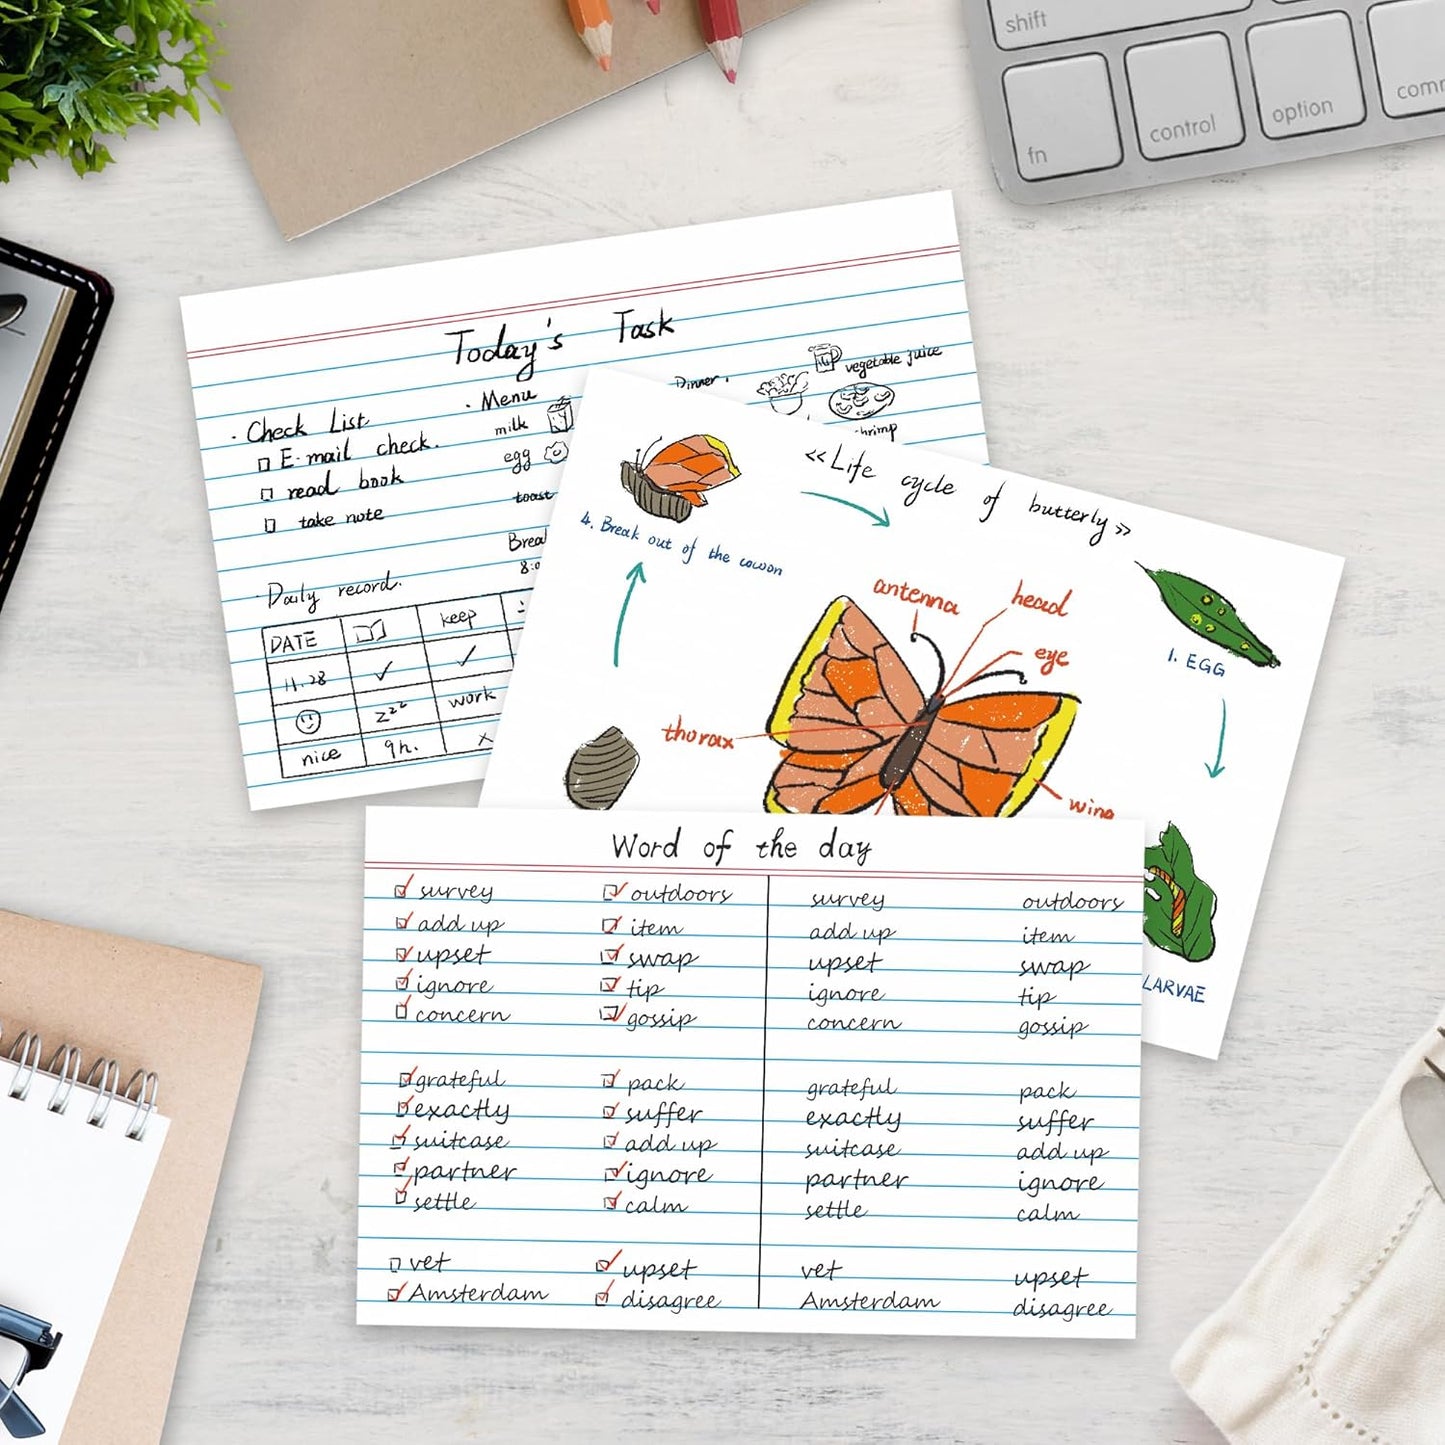 shift
fn
control
option
Today's Task
· Check List
E-mail check.
read book
take note
· Menu
milk
egg
toast
8:0
Dinner.
vegetable juice
· Daily record.
DATE keep
11.28
zzz work
nice 9h. x
«Life cycle of butterly»
4. Break out of the cocoon
antenna
head
eye
thorax
wing
1. EGG
LARVAE
Word of the day
survey outdoors survey outdoors
add up item add up item
upset swap upset swap
ignore tip ignore tip
concern gossip concern gossip
grateful pack grateful pack
exactly suffer exactly suffer
suitcase add up suitcase add up
partner ignore partner ignore
settle calm settle calm
vet upset vet upset
Amsterdam disagree Amsterdam disagree